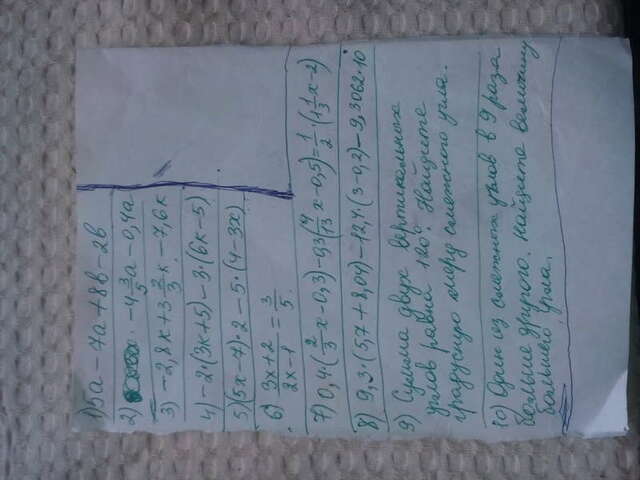 1) 5a - 7a + 8b - 2b
2) -4 3/5 a - 0,4a
3) -2,8k + 3 2/3 k - 7,6k
4) -2·(3k+5) - 3·(6k-5)
5) (5x-7)·2 - 5·(4-3x)
6) (3x+2)/(2x-1) = 3/5.
7) 0,4·(2/3 x - 0,3) - 0,3(4/13 x - 0,5) = 1/2·(1 1/13 x - 2)
8) 9,3·(5,7+8,04) - 12,4·(3-0,2) - 9,3062·10
9) Сумма двух вертикальных
углов равна 120°. Найдите
градусную меру смежного угла.
10) Один из смежных углов в 9 раза
больше другого. найдите величину
большего угла.